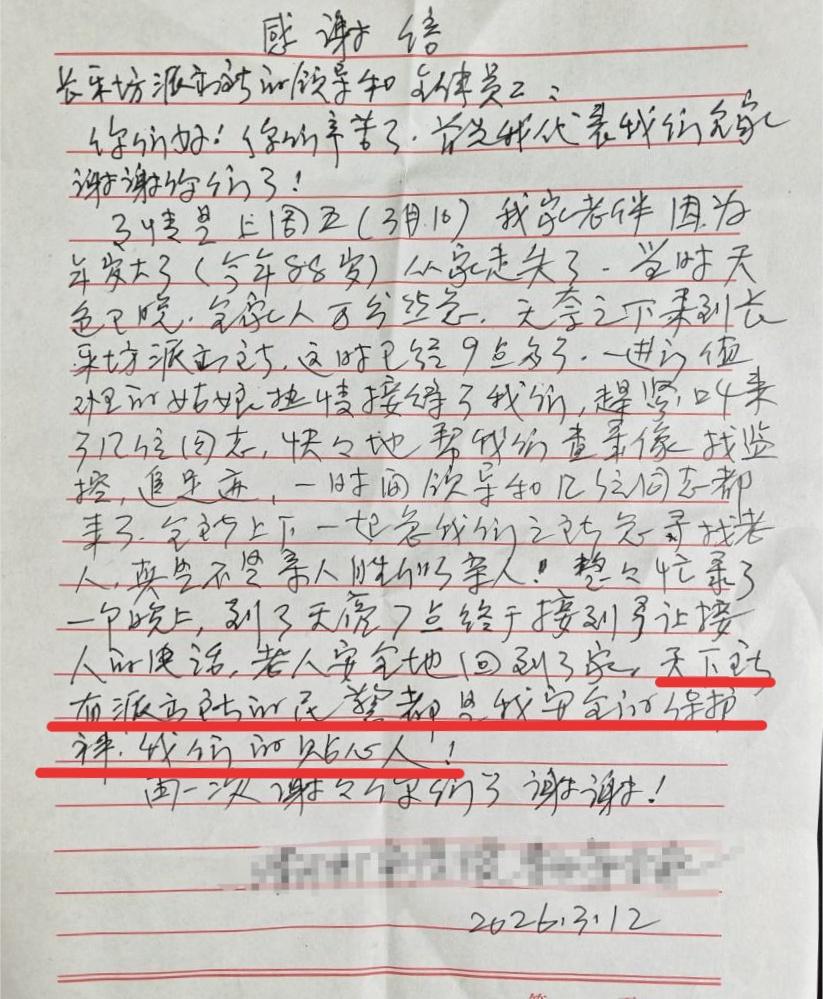 感谢信
长乐坊派出所的领导和全体员工：
你们好！你们辛苦了．首先我代表我们全家
谢谢你们了！
事情是上周五（3月.10）我家老伴因为
年岁大了（今年88岁）从家走失了．当时天
色已晚．全家人万分焦急．无奈之下来到长
乐坊派出所．这时已经9点多了．一进门值
班的姑娘热情接待了我们，赶紧叫来
了几位同志，快々地帮我们查录像找监
控，追足迹，一时间领导和几位同志都
来了．全所上下一起急我们之所急寻找老
人，真是不是亲人胜似亲人！整々忙录了
一个晚上，到了天亮7点终于接到了让接
人的电话，老人安全地回到了家，天下所
有派出所的民警都是我安全的保护
神．我们的贴心人！
再一次谢々你们了谢谢！
2026.3.12